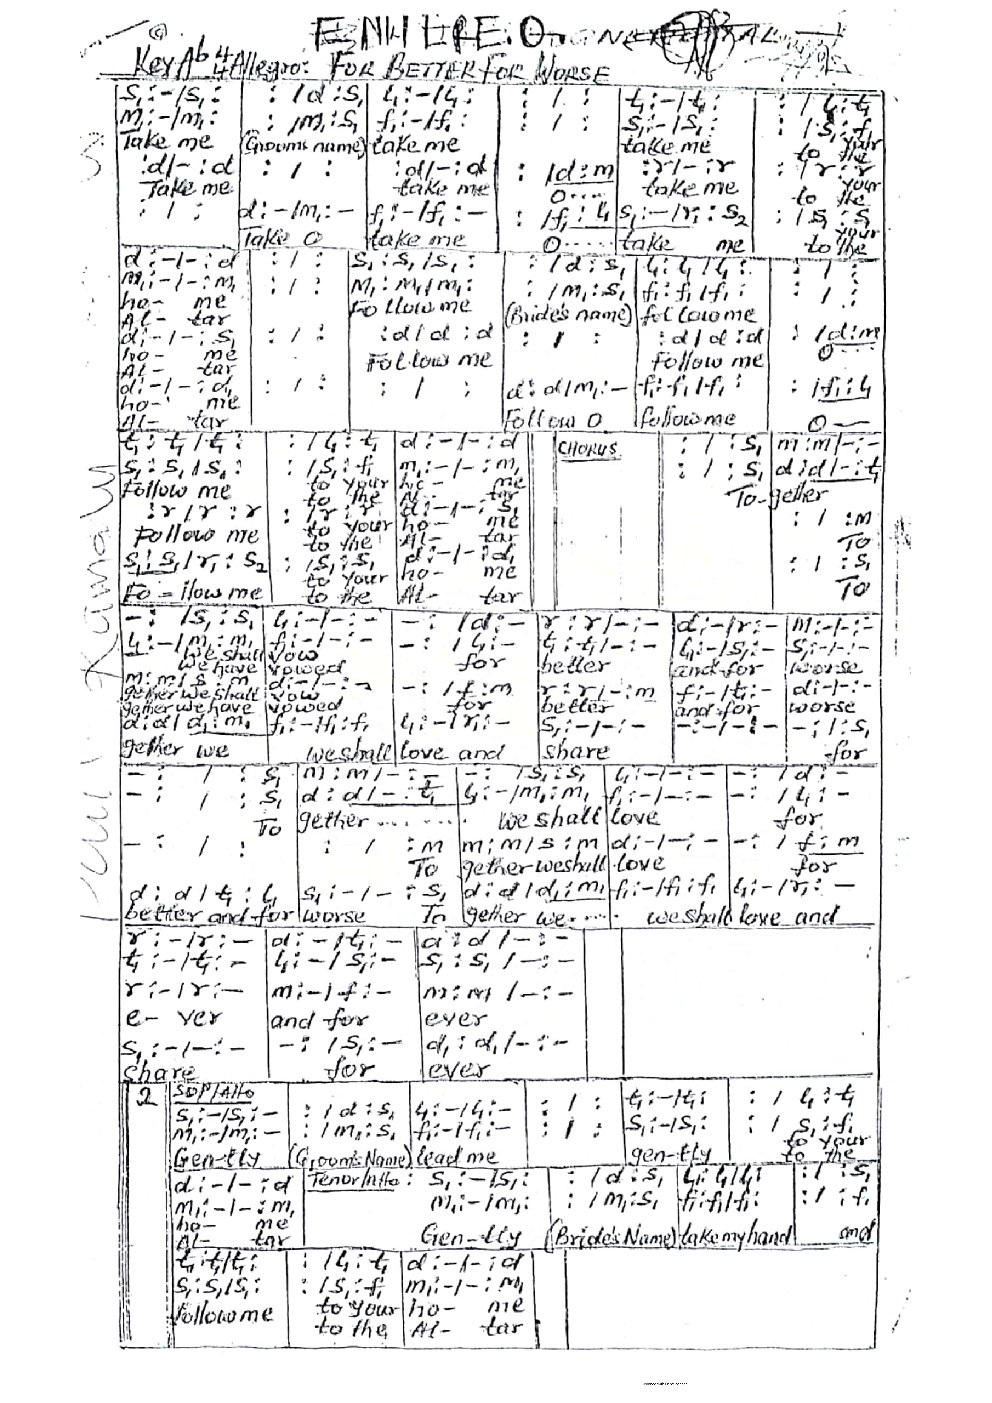 E. NHLPE. O.
Key Ab 4/4 Allegro: FOR BETTER FOR WORSE
s₁ :- /s₁ : | : /d :s₁ | l₁ :- /l₁ : | : / : | t₁ :- /t₁ : | : / l₁ : t₁
m₁ :- /m₁ : | : /m₁ :s₁ | f₁ :- /f₁ : | : / : | s₁ :- /s₁ : | : /s₁ : f₁
Take me | (Grooms name) | take me | take me | to your
to the
: d/- : d | : / : | : d/- : d | : /d : m | : r/- : r | : /r : r
Take me | take me | O.... | take me | to your
to the
: / : | d :- /m₁ :- | f₁ :- /f₁ :- | : /f₁ : l₁ | s₁ :- /r₁ : s₂ | : /s₁ : s₁
Take O | take me | O..... | take me | to the
your
d :- /- : d | : / : | s₁ : s₁ /s₁ : | : /d : s₁ | l₁ : l₁ /l₁ : | : / :
m₁ :- /- : m₁ | : / : | m₁ : m₁ /m₁ : | : /m₁ : s₁ | f₁ : f₁ /f₁ : | : / :
ho- me | Follow me | (Bride's name) | follow me
Al- tar
d :- /- : s₁ | : / : | : d/d : d | : / : | : d/d : d | : /d : m
ho- me | Follow me | Follow me | O....
Al- tar
d :- /- : d₁ | : / : | : / : | d : d/m₁ :- | f₁ : f₁ /f₁ : | : /f₁ : l₁
ho- me | Follow O | follow me | O—
Al- tar
t₁ : t₁ /t₁ : | : /l₁ : t₁ | d :- /- : d | CHORUS | : / : s₁ | m : m/- : -
s₁ : s₁ /s₁ : | : /s₁ : f₁ | m₁ :- /- : m₁ | : / : s₁ | d : d/- : t₁
Follow me | to your | ho- me | To-gether
to the | Al- tar
: r/r : r | : /r : r | d :- /- : s₁ | : / : m
Follow me | to your | ho- me | To
to the | Al- tar
s₁ : s₁ /r₁ : s₂ | : /s₁ : s₁ | d :- /- : d₁ | : / : s₁
Fo - llow me | to your | ho- me | To
to the | Al- tar
- : /s₁ : s₁ | l₁ :- /- : - | - : /d :- | r : r/- : - | d :- /r :- | m :- /- : -
l₁ :- /m₁ : m₁ | f₁ :- /- : - | - : /l₁ :- | t₁ : t₁ /- : - | l₁ :- /s₁ :- | s₁ :- /- : -
We shall | vow | for | better | and for | worse
We have | vowed
m : m/s : m | d :- /- : - | - : /f : m | r : r/- : m | f :- /t₁ :- | d :- /- : -
gether we shall | vow | for | better | and for | worse
gether we have | vowed
d : d/d₁ : m₁ | f₁ :- /f₁ : f₁ | l₁ :- /r₁ :- | s₁ :- /- : - | - : - /- : - | - : - /: s₁
gether we | we shall | love and | share | for
- : / : s₁ | m : m/- : - | - : /s₁ : s₁ | l₁ :- /- : - | - : /d :-
- : / : s₁ | d : d/- : t₁ | l₁ :- /m₁ : m₁ | f₁ :- /- : - | - : /l₁ :-
To | gether ........ | we shall | love | for
- : / : | : / : m | m : m/s : m | d :- /- : - | - : /f : m
To | gether we shall | love | for
d : d/t₁ : l₁ | s₁ :- /- : s₁ | d : d/d₁ : m₁ | f₁ :- /f₁ : f₁ | l₁ :- /r₁ : -
better and for | worse To | gether we..... | we shall | love and
r :- /r :- | d :- /t₁ :- | d : d/- : -
t₁ :- /t₁ :- | l₁ :- /s₁ :- | s₁ : s₁ /- : -
r :- /r :- | m :- /f :- | m : m/- : -
e- ver | and for | ever
s₁ :- /- : - | - : /s₁ :- | d₁ : d₁ /- : -
share | for | ever
2 | SOP/Alto
s₁ :- /s₁ :- | : /d : s₁ | l₁ :- /l₁ :- | : / : | t₁ :- /t₁ : | : /l₁ : t₁
m₁ :- /m₁ :- | : /m₁ : s₁ | f₁ :- /f₁ :- | : / : | s₁ :- /s₁ : | : /s₁ : f₁
Gen-tly | (Groom's Name) | lead me | gen-tly | to your
to the
d :- /- : d | Tenor/Alto : s₁ :- /s₁ : | : /d : s₁ | l₁ : l₁ /l₁ : | : / : s₁
m₁ :- /- : m₁ | m₁ :- /m₁ : | : /m₁ : s₁ | f₁ : f₁ /f₁ : | : / : f₁
ho- me | Gen-tly | (Bride's Name) | take my hand | and
Al- tar
t₁ : t₁ /t₁ : | : /l₁ : t₁ | d :- /- : d
s₁ : s₁ /s₁ : | : /s₁ : f₁ | m₁ :- /- : m₁
Follow me | to your | ho- me
to the | Al- tar